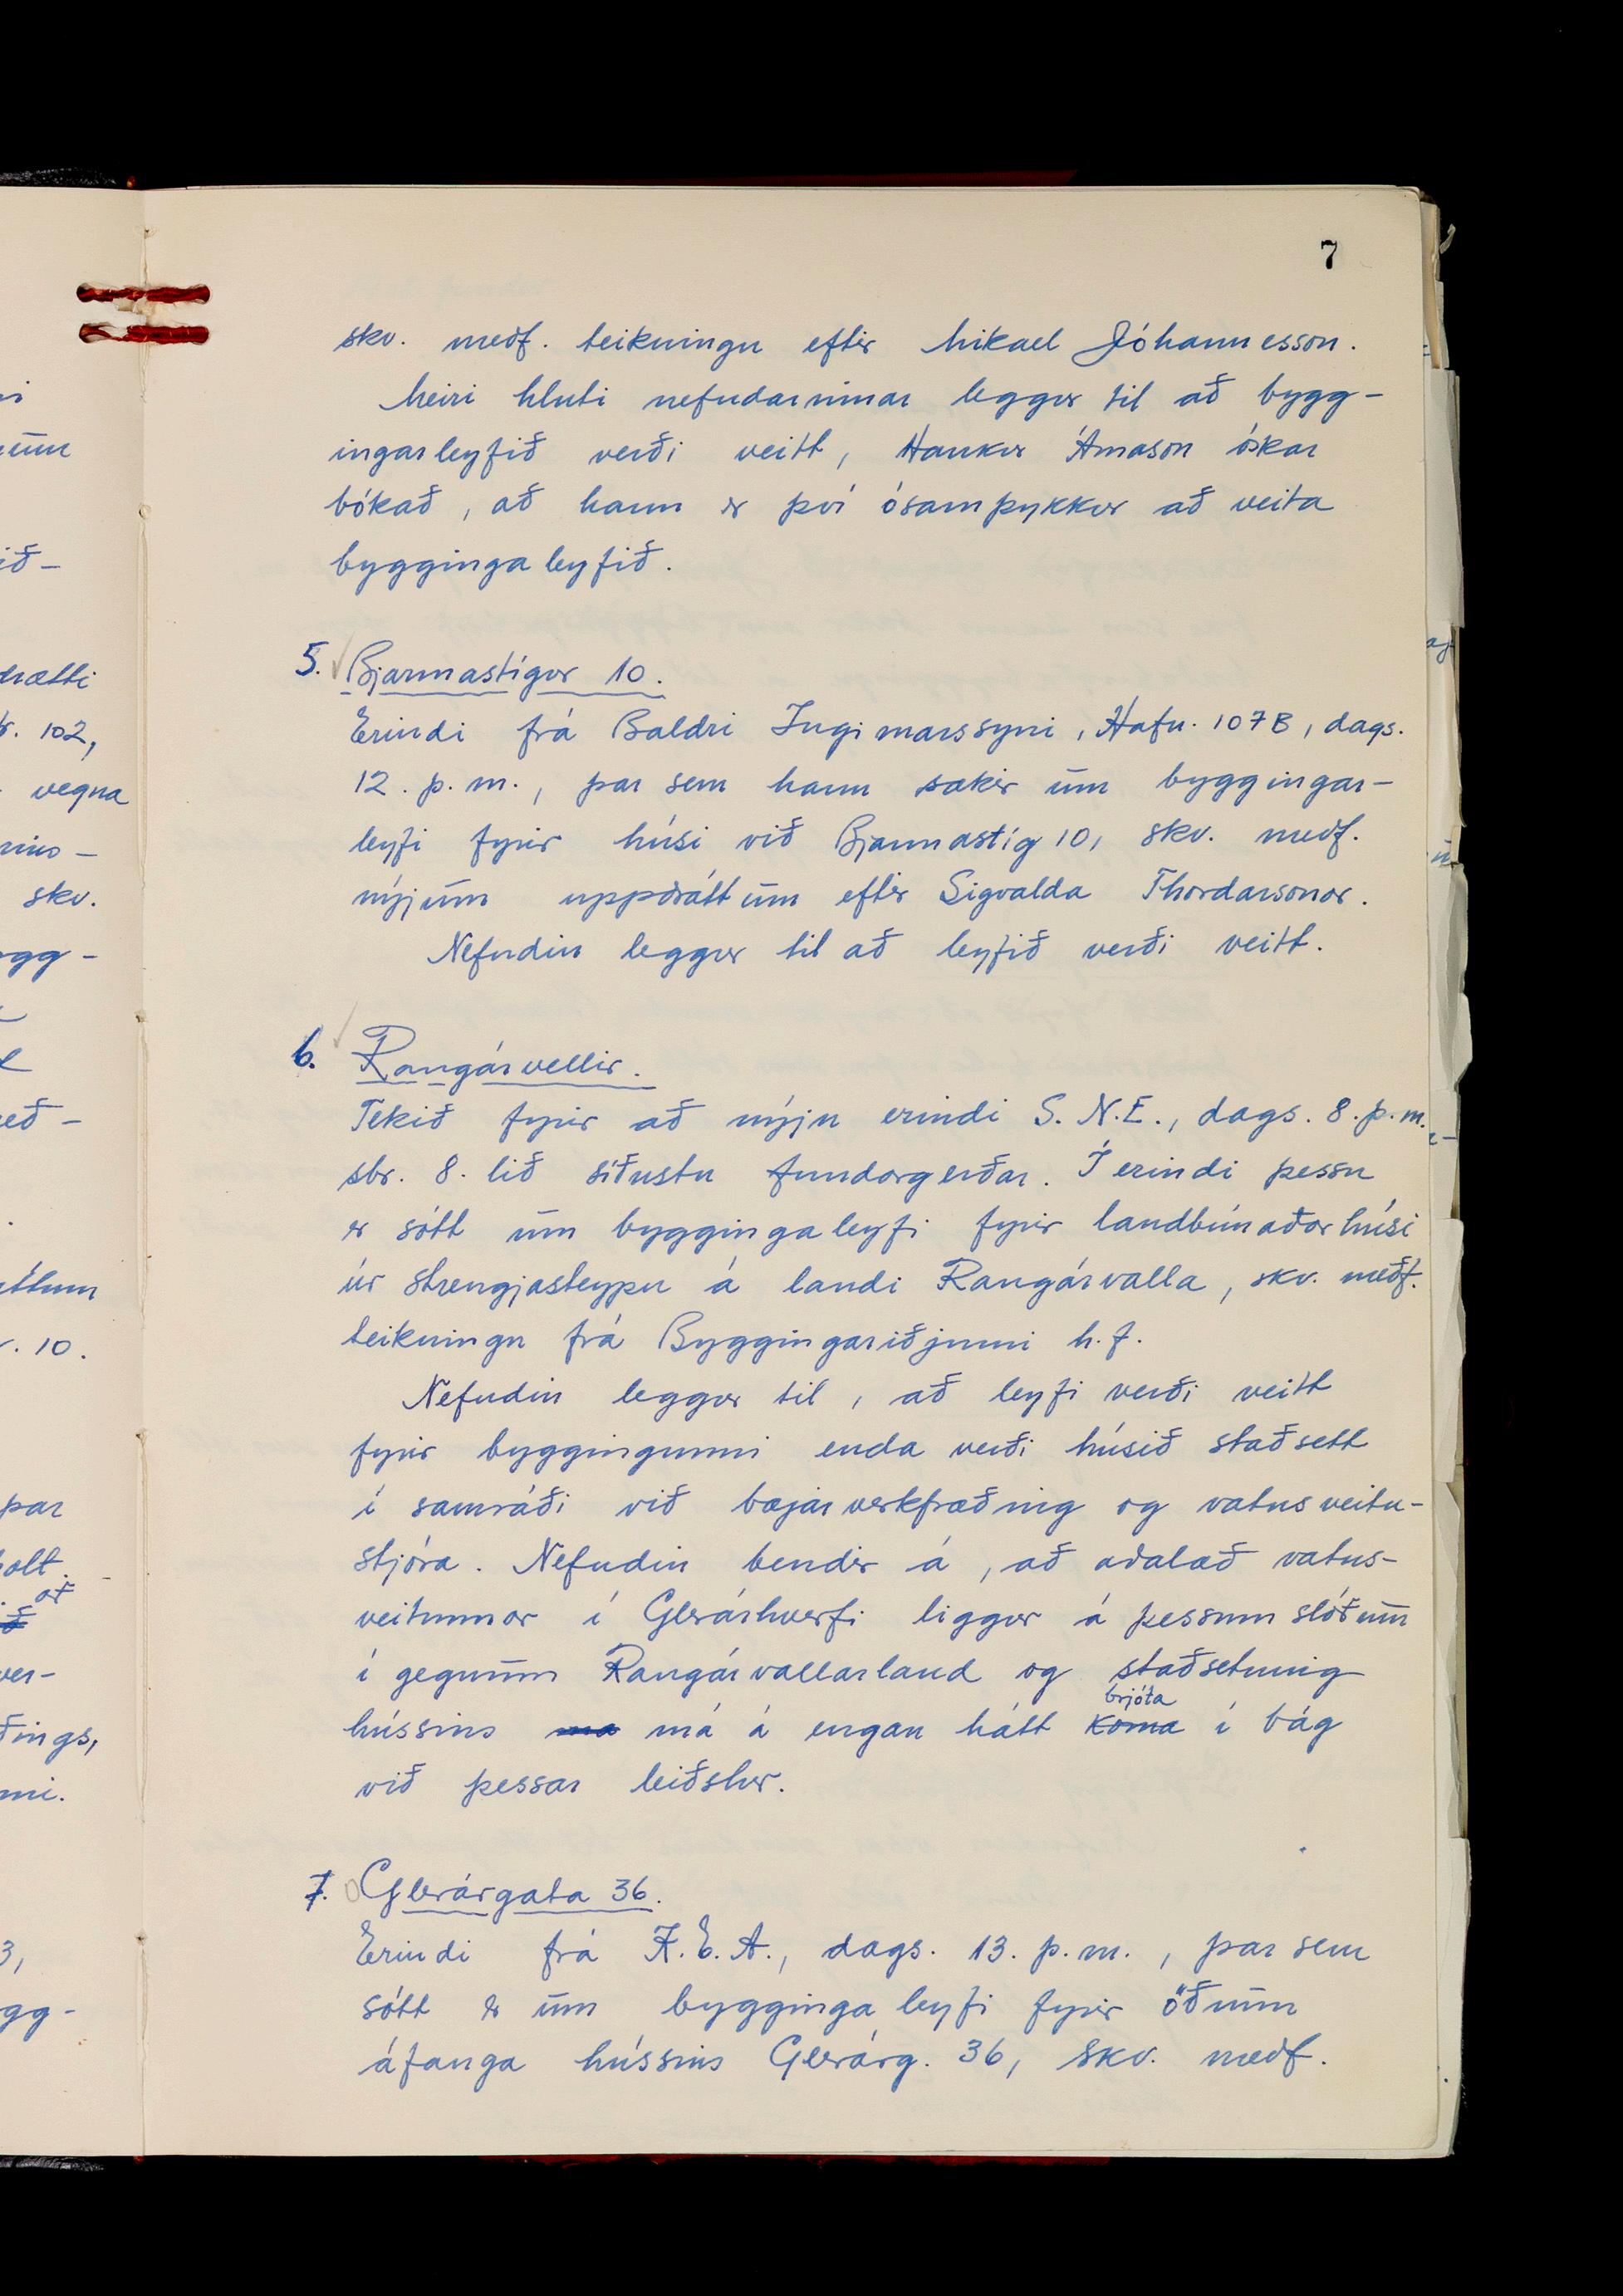 7
skv. meðf. teikningu eftir Mikael Jóhannesson.
Meiri hluti nefndarinnar leggur til að bygg-
ingarleyfið verði veitt, Haukur Árnason óskar
bókað, að hann er því ósamþykkur að veita
byggingaleyfið.
5. Bjarmastígur 10.
Erindi frá Baldri Ingimarssyni, Hafn. 107B, dags.
12. þ.m., þar sem hann sækir um byggingar-
leyfi fyrir húsi við Bjarmastíg 10, skv. meðf.
nýjum uppdráttum eftir Sigvalda Thordarsonar.
Nefndin leggur til að leyfið verði veitt.
6. Rangárvellir.
Tekið fyrir að nýju erindi S.N.E., dags. 8. þ.m.
sbr. 8. lið síðustu fundargerðar. Í erindi þessu
er sótt um byggingaleyfi fyrir landbúnaðarhúsi
úr strengjasteypu á landi Rangárvalla, skv. meðf.
teikningu frá Byggingariðjunni h.f.
Nefndin leggur til, að leyfi verði veitt
fyrir byggingunni enda verði húsið staðsett
í samráði við bæjarverkfræðing og vatnsveitu-
stjóra. Nefndin bendir á, að aðalæð vatns-
veitunnar í Glerárhverfi liggur á þessum slóðum
í gegnum Rangárvallarland og staðsetning
brjóta
hússins ma má á engan hátt koma í bág
við þessar leiðslur.
7. Glerárgata 36.
Erindi frá K.E.A., dags. 13. þ.m., þar sem
sótt er um byggingaleyfi fyrir öðrum
áfanga hússins Glerárg. 36, skv. meðf.